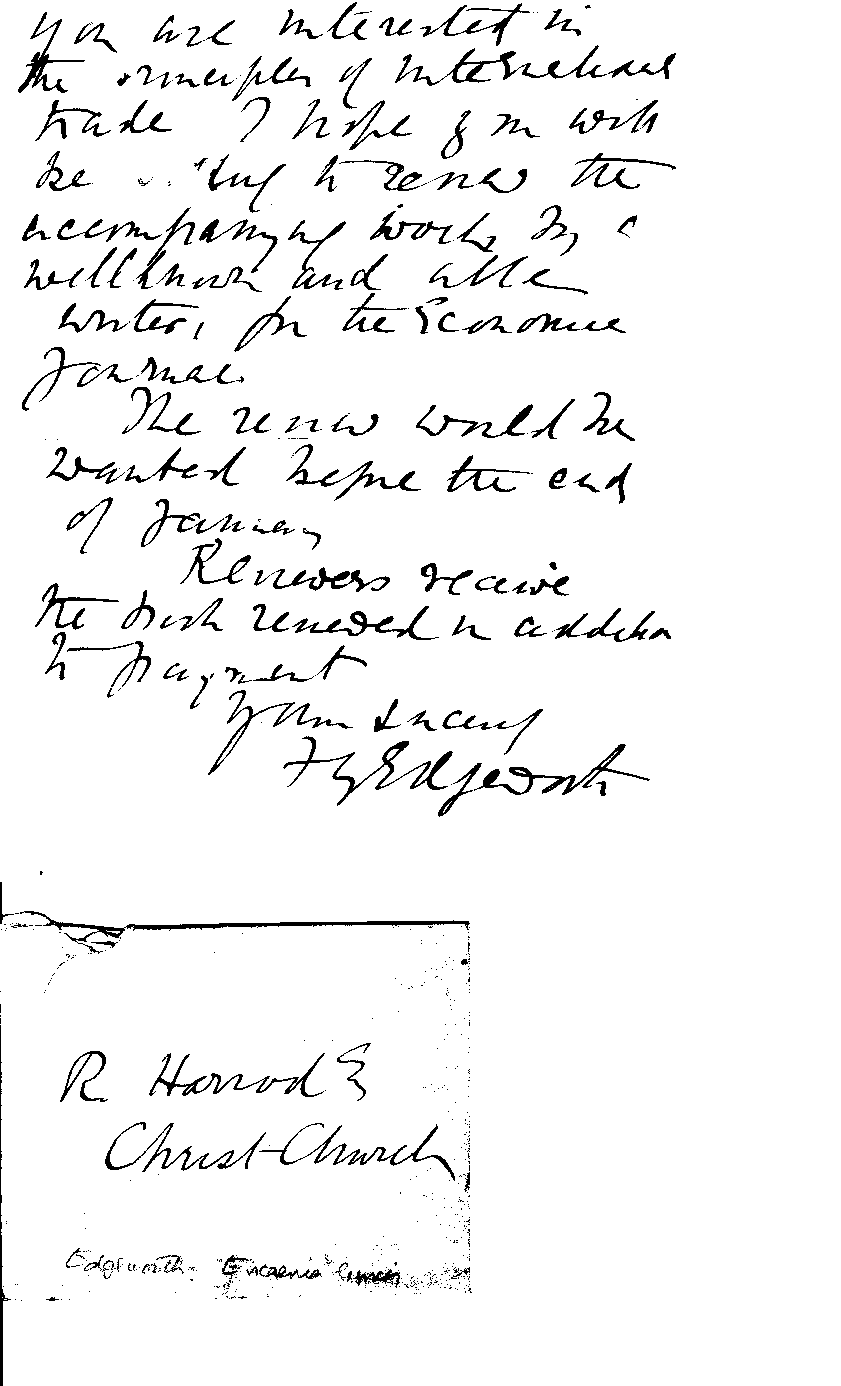 you are interested in
the principles of international
trade I hope you will
be willing to review the
accompanying work, by a
wellknown and able
writer, for the Economic
Journal.
The review would be
wanted before the end
of January
Reviewers receive
the book reviewed in addition
to payment
Yours sincerely
F Y Edgeworth
R. Harrod Esq
Christ Church
Edgeworth: